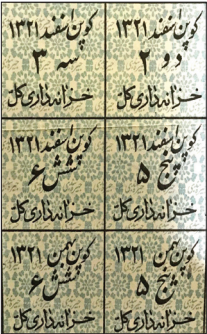 کوپن اسفند ۱۳۲۱
دو ۲
خزانه‌داری کل
کوپن اسفند ۱۳۲۱
سه ۳
خزانه‌داری کل
کوپن اسفند ۱۳۲۱
پنج ۵
خزانه‌داری کل
کوپن اسفند ۱۳۲۱
شش ۶
خزانه‌داری کل
کوپن بهمن ۱۳۲۱
پنج ۵
خزانه‌داری کل
کوپن بهمن ۱۳۲۱
شش ۶
خزانه‌داری کل